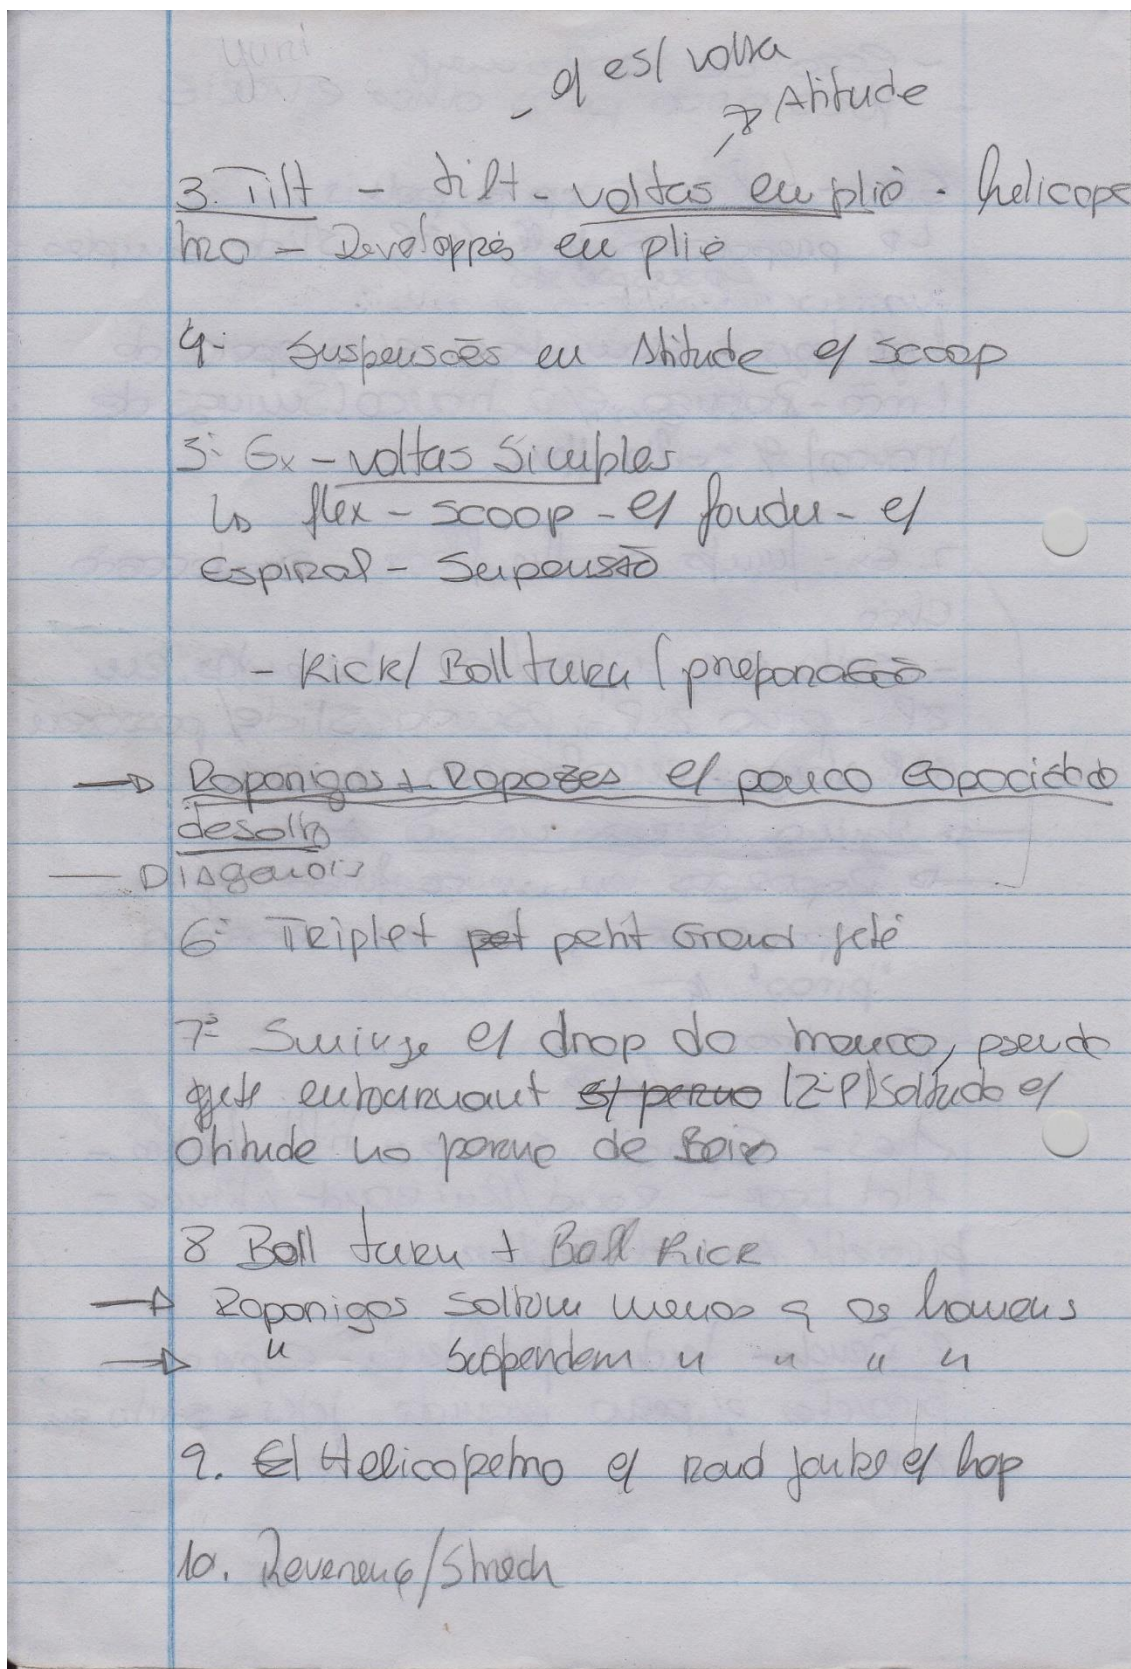 - q est volta
→ Atitude
3. Tilt - tilt - voltas em plié - helicope
tro - Developpés em plié
4- Suspensões em Atitude c/ scoop
5- Ex - voltas Simples
↳ flex - scoop - c/ fondu - c/
Espiral - Supensão
- Kick/ Ball turn (preparação
→ Raparigas + Rapazes c/ pouca capacidade
de salto
— Diagonais
6- Triplet pet petit Grand jeté
7ª Swinge c/ drop do tronco, pseudo
jeté entournant c/ perna (2ªP) saltado c/
atitude na perna de Baixo
8 Ball turn + Ball Kick
→ Raparigas saltam menos q os homens
→ " Suspendem " " " "
9. Helicoptero c/ rond jambe c/ hop
10. Reverence/Strech